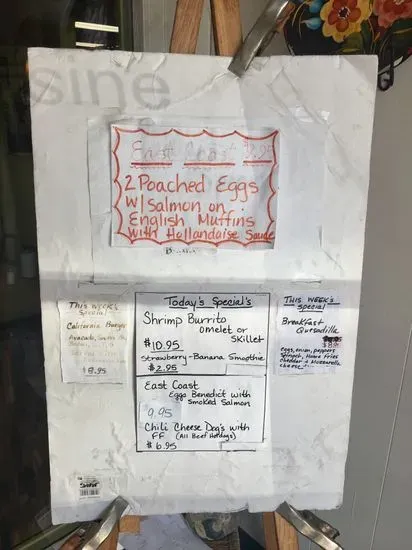 sine
East Coast
2 Poached Eggs
w/Salmon on
English Muffins
with Hollandaise Sauce
This week's
Special
California Burger
Avocado,
Today's Special's
Shrimp Burrito
omelet or
skillet
$10.95
Strawberry-Banana Smoothie
$2.95
East Coast
Eggs Benedict with
Smoked Salmon
9.95
Chili Cheese Dog's with
FF (All Beef Hotdogs)
$6.95
This week's
special
Breakfast
Quesadilla
eggs, onion, peppers
spinach, home fries
cheddar & Mozzarella
cheese